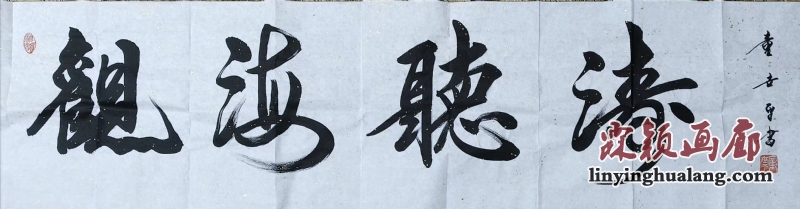 觀海聽涛
霖颖画廊
linyinghualang.com